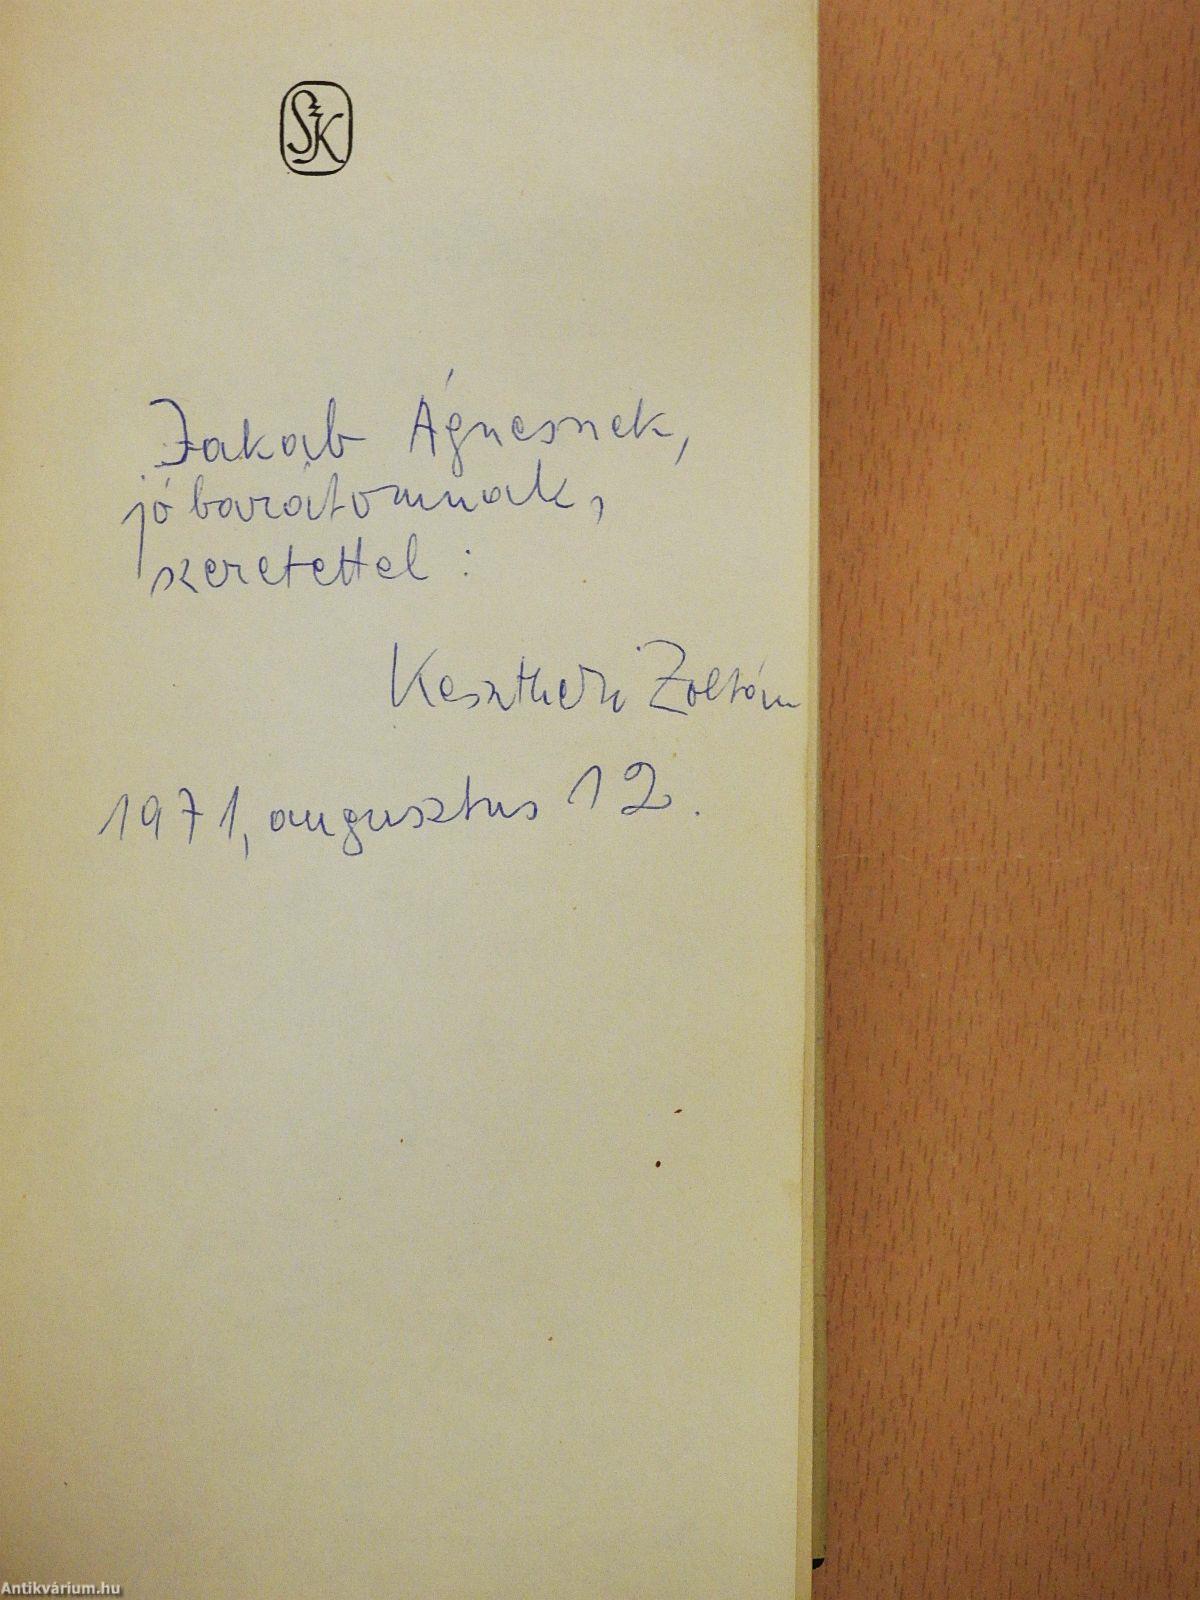 SK
Jakab Ágnesnek,
jóbarátomnak,
szeretettel:
Keszthelyi Zoltán
1971, augusztus 12.
Antikvárium.hu